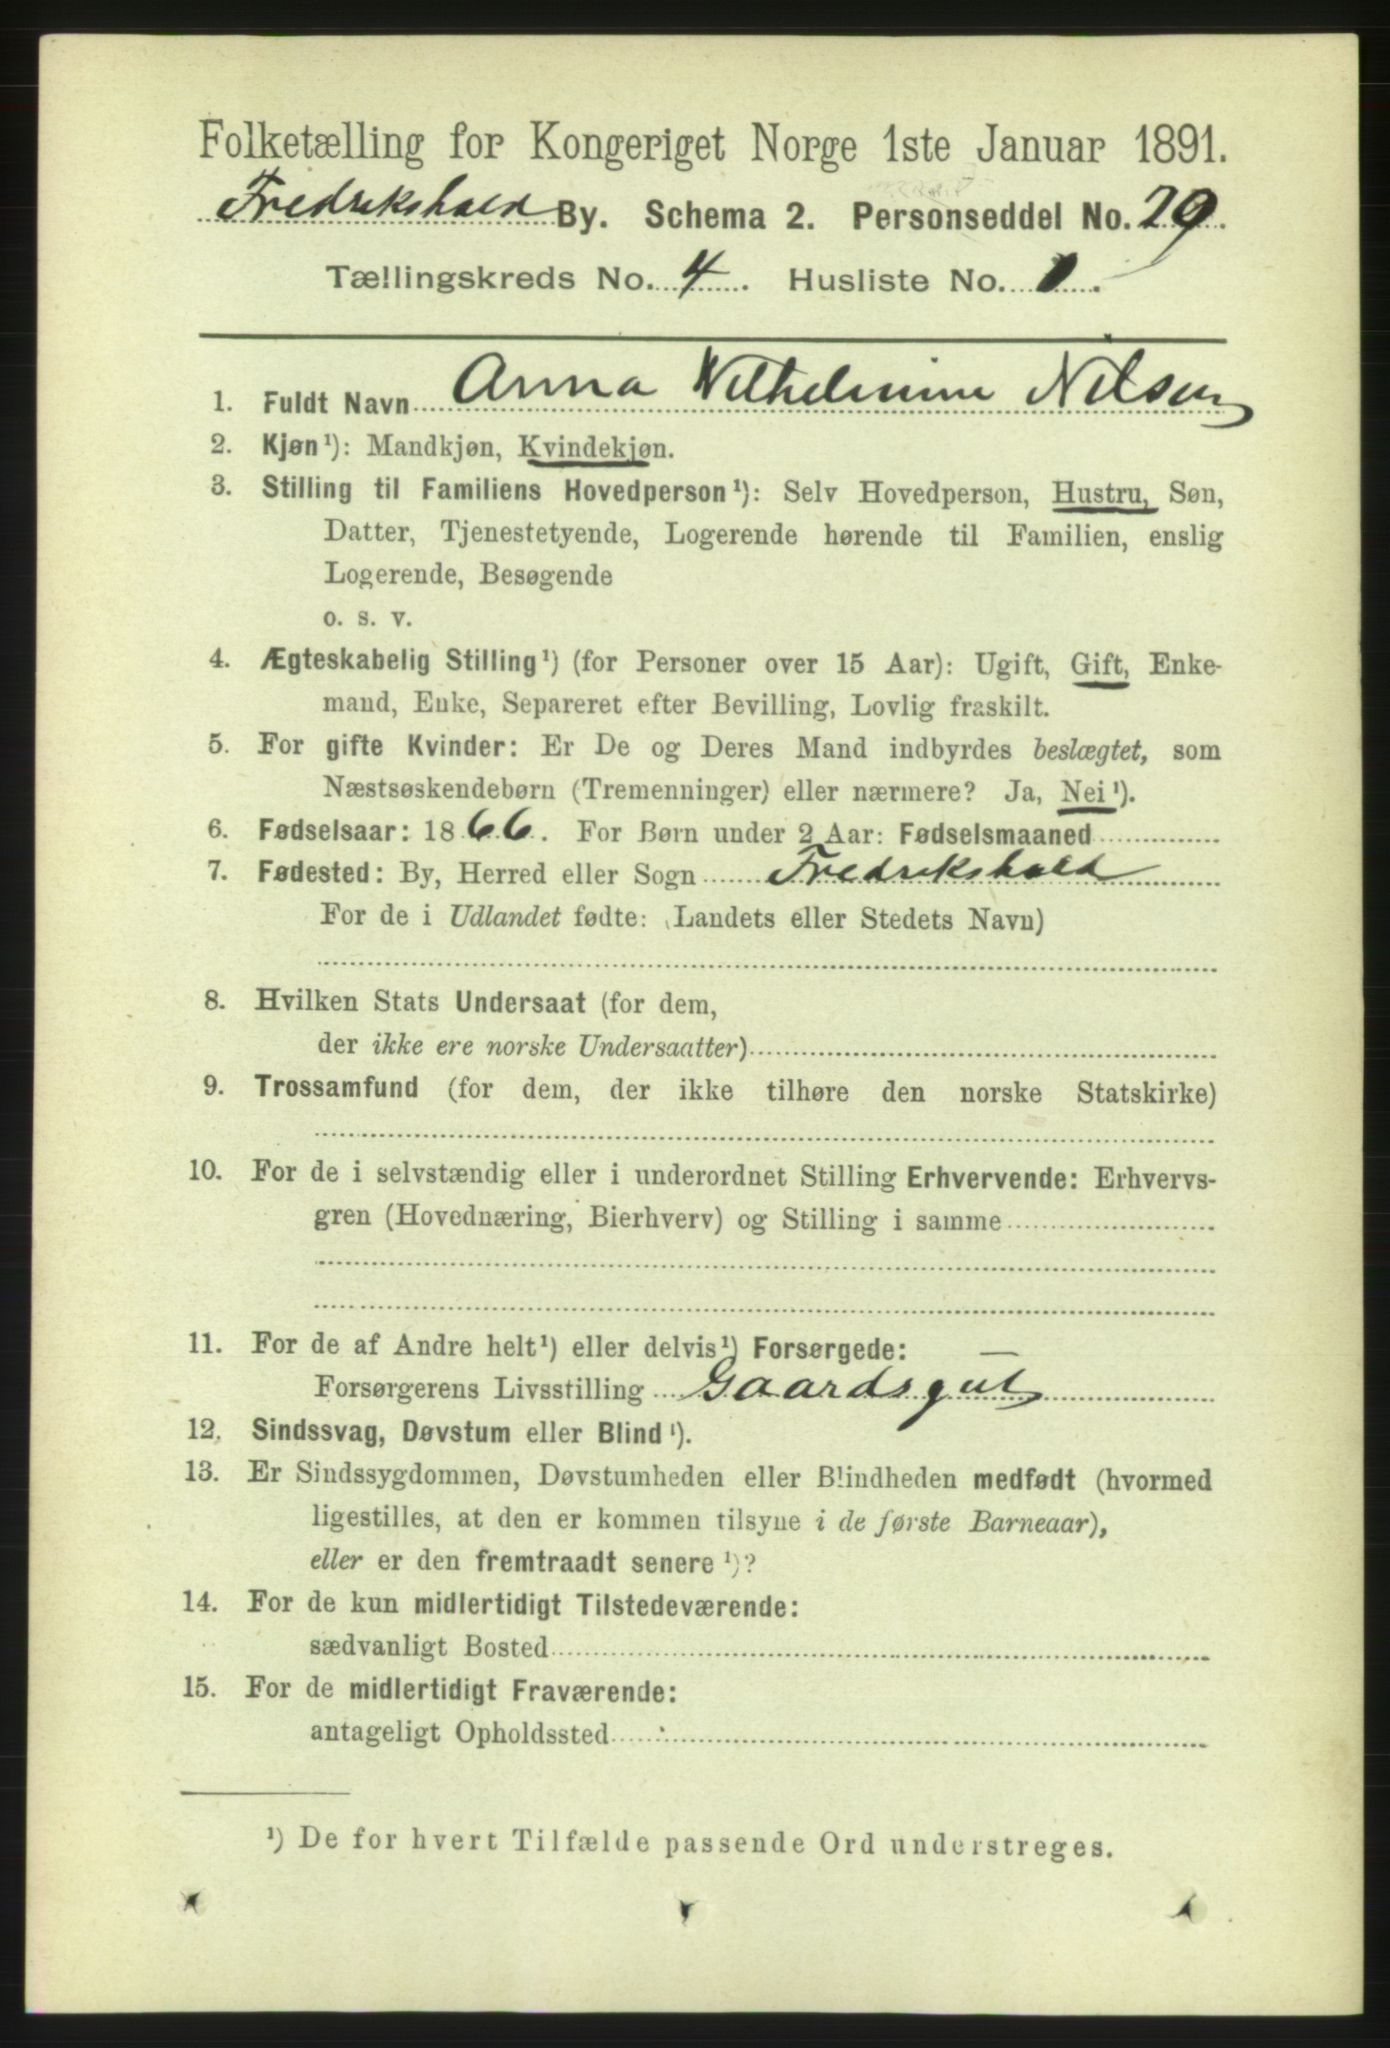 Folketælling for Kongeriget Norge 1ste Januar 1891.
Fredrikshald By. Schema 2. Personseddel No. 29.
Tællingskreds No. 4. Husliste No. 1.
1. Fuldt Navn Anna Wilhelmine Nilsen
2. Kjøn¹): Mandkjøn, Kvindekjøn.
3. Stilling til Familiens Hovedperson¹): Selv Hovedperson, Hustru, Søn,
Datter, Tjenestetyende, Logerende hørende til Familien, enslig
Logerende, Besøgende
o. s. v.
4. Ægteskabelig Stilling¹) (for Personer over 15 Aar): Ugift, Gift, Enke-
mand, Enke, Separeret efter Bevilling, Lovlig fraskilt.
5. For gifte Kvinder: Er De og Deres Mand indbyrdes beslægtet, som
Næstsøskendebørn (Tremenninger) eller nærmere? Ja, Nei¹).
6. Fødselsaar: 1866. For Børn under 2 Aar: Fødselsmaaned
7. Fødested: By, Herred eller Sogn Fredrikshald
For de i Udlandet fødte: (Landets eller Stedets Navn)
8. Hvilken Stats Undersaat (for dem,
der ikke ere norske Undersaatter)
9. Trossamfund (for dem, der ikke tilhøre den norske Statskirke)
10. For de i selvstændig eller i underordnet Stilling Erhvervende: Erhvervs-
gren (Hovednæring, Bierhverv) og Stilling i samme
11. For de af Andre helt¹) eller delvis¹) Forsørgede:
Forsørgerens Livsstilling Gaardsgut
12. Sindssvag, Døvstum eller Blind¹).
13. Er Sindssygdommen, Døvstumheden eller Blindheden medfødt (hvormed
ligestilles, at den er kommen tilsyne i de første Barneaar),
eller er den fremtraadt senere¹)?
14. For de kun midlertidigt Tilstedeværende:
sædvanligt Bosted
15. For de midlertidigt Fraværende:
antageligt Opholdssted
¹) De for hvert Tilfælde passende Ord understreges.